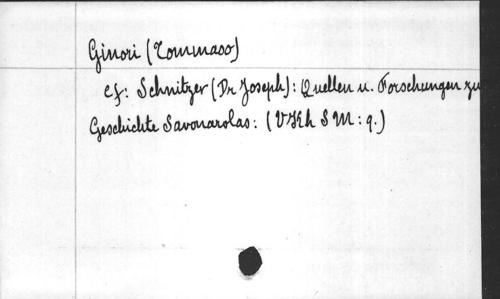 Ginori (Tommaso)
cf: Schnitzer (Dr Joseph): Quellen u. Forschungen zu
Geschichte Savonarolas: (VJEh S M: q.)